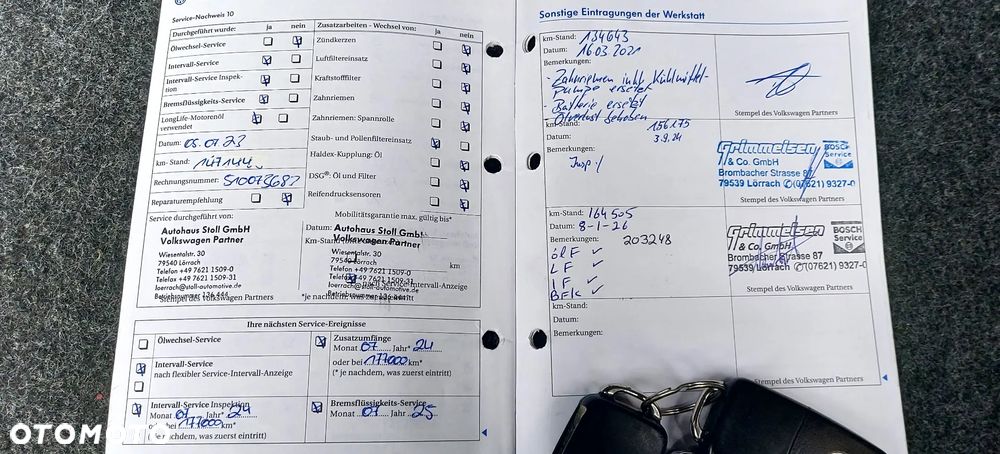 Service-Nachweis 10
Durchgeführt wurde: ja nein
Ölwechsel-Service
Intervall-Service
Intervall-Service Inspek-
tion
Bremsflüssigkeits-Service
LongLife-Motorenöl
verwendet
Datum: 05.07.23
km-Stand: 147144
Rechnungsnummer:
Reparaturempfehlung
Service durchgeführt von:
Autohaus Stoll GmbH
Volkswagen Partner
Wiesentalstr. 30
79540 Lörrach
Telefon +49 7621 1509-0
Telefax +49 7621 1509-31
loerrach@stoll-automotive.de
Betriebsnummer 136 444
Stempel des Volkswagen Partners
Zusatzarbeiten - Wechsel von: ja nein
Zündkerzen
Luftfiltereinsatz
Kraftstofffilter
Zahnriemen
Zahnriemen: Spannrolle
Staub- und Pollenfiltereinsatz
Haldex-Kupplung: Öl
DSG®: Öl und Filter
Reifendrucksensoren
Mobilitätsgarantie max. gültig bis*
Datum:
Autohaus Stoll GmbH
Volkswagen Partner
km-Stand
Wiesentalstr. 30
79540 Lörrach
km
Telefon +49 7621 1509-0
Telefax +49 7621 1509-31
nach Service-Intervall-Anzeige
loerrach@stoll-automotive.de
Betriebsnummer 136 444
*je nachdem, was zuerst eintritt
Ihre nächsten Service-Ereignisse
Ölwechsel-Service
Intervall-Service
nach flexibler Service-Intervall-Anzeige
Intervall-Service Inspektion
Monat 07 Jahr* 24
bei 177000 km*
(* je nachdem, was zuerst eintritt)
Zusatzumfänge
Monat 07 Jahr* 24
oder bei 177000 km*
(* je nachdem, was zuerst eintritt)
Bremsflüssigkeits-Service
Monat 07 Jahr 25
Sonstige Eintragungen der Werkstatt
km-Stand: 134643
Datum: 16.03.2021
Bemerkungen:
- Zahnriemen inkl. Kühlmittel-
pumpe ersetzt
- Batterie ersetzt
- Ölverlust behoben
Stempel des Volkswagen Partners
km-Stand: 156175
Datum: 3.9.24
Bemerkungen:
Insp.
Grimmeisen
& Co. GmbH
Brombacher Strasse 87
79539 Lörrach ✆(07621) 9327-0
BOSCH
Service
Stempel des Volkswagen Partners
km-Stand: 164505
Datum: 8-1-26
Bemerkungen: 203248
ÖlF ✓
LF ✓
IF ✓
BFlk ✓
Grimmeisen
& Co. GmbH
Brombacher Strasse 87
79539 Lörrach ✆(07621) 9327-0
BOSCH
Service
Stempel des Volkswagen Partners
km-Stand:
Datum:
Bemerkungen:
Stempel des Volkswagen Partners